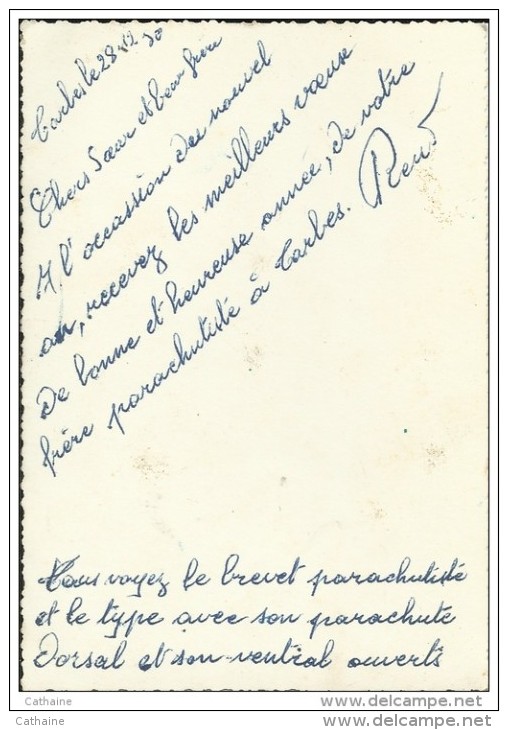 Tarbes le 28-12-50
Chers Sœur et beau frère
A l'occassion du nouvel
an, recevez les meilleurs vœuse
De bonne et heureuse année, de votre
frère parachutiste à Tarbes.
René
Vous voyez le brevet parachutiste
et le type avec son parachute
Dorsal et son ventral ouverts
Cathaine
www.delcampe.net
Cathaine
www.delcampe.net